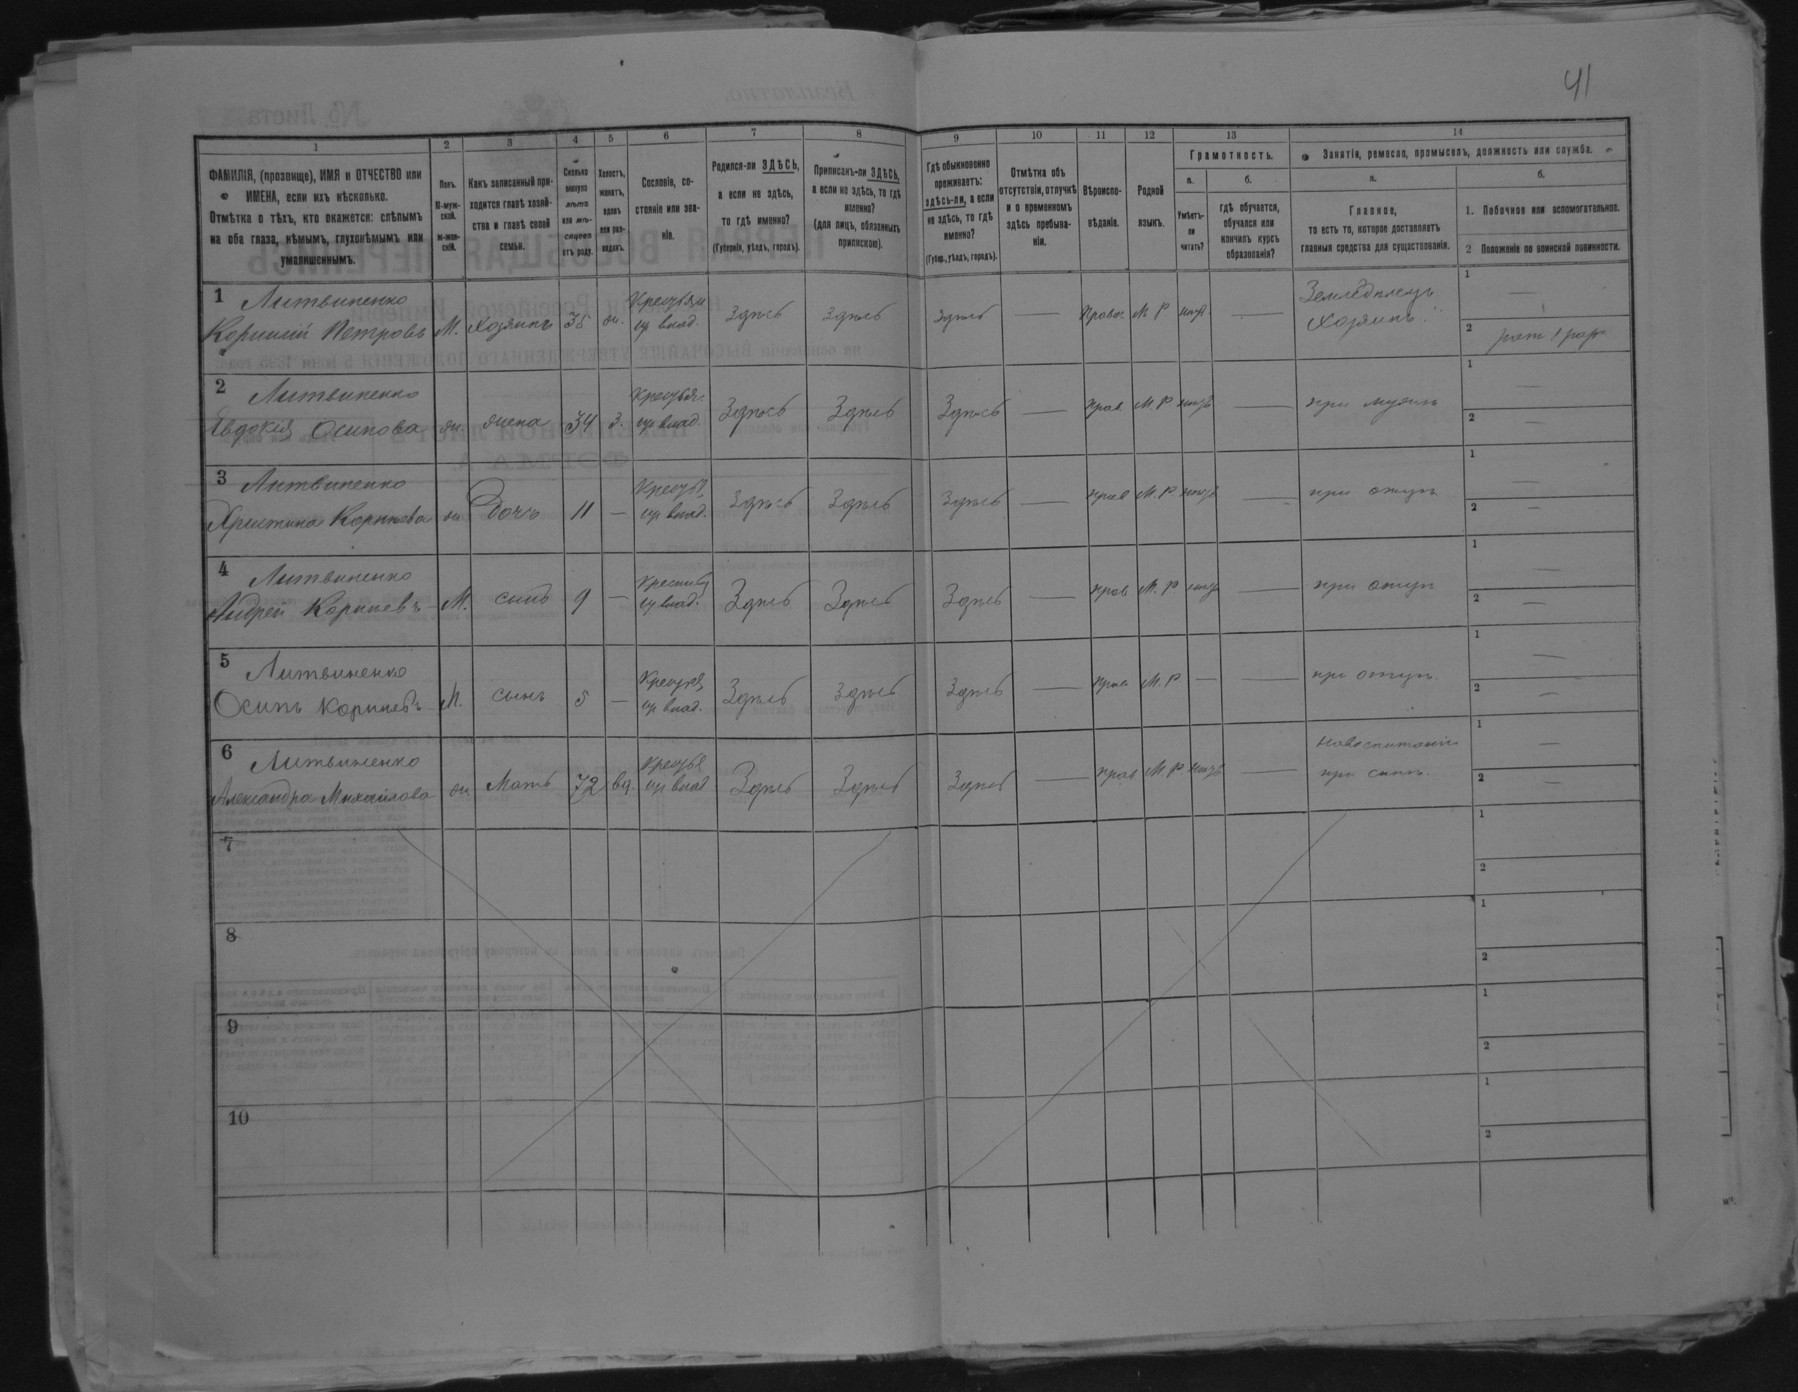 41
1 2 3 4 5 6 7 8 9 10 11 12 13 14
ФАМИЛІЯ, (прозвище), ИМЯ и ОТЧЕСТВО или
ИМЕНА, если ихъ нѣсколько.
Отмѣтка о тѣхъ, кто окажется: слѣпымъ
на оба глаза, нѣмымъ, глухонѣмымъ или
умалишеннымъ.
Полъ.
М-муж-
ской.
ж-жен-
скій.
Какъ записанный при-
ходится главѣ хозяй-
ства и главѣ своей
семьи.
Сколько
минуло
лѣтъ
или мѣ-
сяцевъ
отъ роду.
Холостъ,
женатъ,
вдовъ
или раз-
веденъ.
Сословіе, со-
стояніе или зва-
ніе.
Родился-ли ЗДѢСЬ,
а если не здѣсь,
то гдѣ именно?
(Губернія, уѣздъ, городъ).
Приписанъ-ли ЗДѢСЬ,
а если не здѣсь, то гдѣ
именно?
(для лицъ, обязанныхъ
припискою).
Гдѣ обыкновенно
проживаетъ:
здѣсь-ли, а если
не здѣсь, то гдѣ
именно?
(Губер., уѣздъ, городъ).
Отмѣтка объ
отсутствіи, отлучкѣ
и о временномъ
здѣсь пребыва-
ніи.
Вѣроиспо-
вѣданіе.
Родной
языкъ.
Грамотность.
а.
Умѣетъ-
ли
читать?
б.
гдѣ обучается,
обучался или
кончилъ курсъ
образованія?
Занятіе, ремесло, промыселъ, должность или служба.
а.
Главное,
то есть то, которое доставляетъ
главныя средства для существованія.
б.
1. Побочное или вспомогательное.
2 Положеніе по воинской повинности.
1 Литвиненко
Корнилій Петровъ М. Хозяинъ 35 ж. Крестьян
ир влад. Здѣсь Здѣсь Здѣсь — Правос М Р — Земледѣлецъ
Хозяинъ 1 —
2
2 Литвиненко
Явдокія Осипова ж. жена 34 З. Крестья.
ир влад. Здѣсь Здѣсь Здѣсь — прав М. Р — при мужѣ 1 —
2 —
3 Литвиненко
Христина Корнѣева ж. Дочь 11 — ир влад. Здѣсь Здѣсь Здѣсь — прав М. Р — при отцѣ 1 —
2 —
4 Литвиненко
Андрей Корнѣевъ М. сынъ 9 — ир влад. Здѣсь Здѣсь Здѣсь — прав М. Р — при отцѣ 1 —
2 —
5 Литвиненко
Осипъ Корнѣевъ М. сынъ 5 — ир влад. Здѣсь Здѣсь Здѣсь — прав М. Р — — при отцѣ 1 —
2 —
6 Литвиненко
Александра Михайлова ж Мать 72 вд. ир влад Здѣсь Здѣсь Здѣсь — прав М Р — при сынѣ. 1 —
2 —
7 1
2
8 1
2
9 1
2
10 1
2